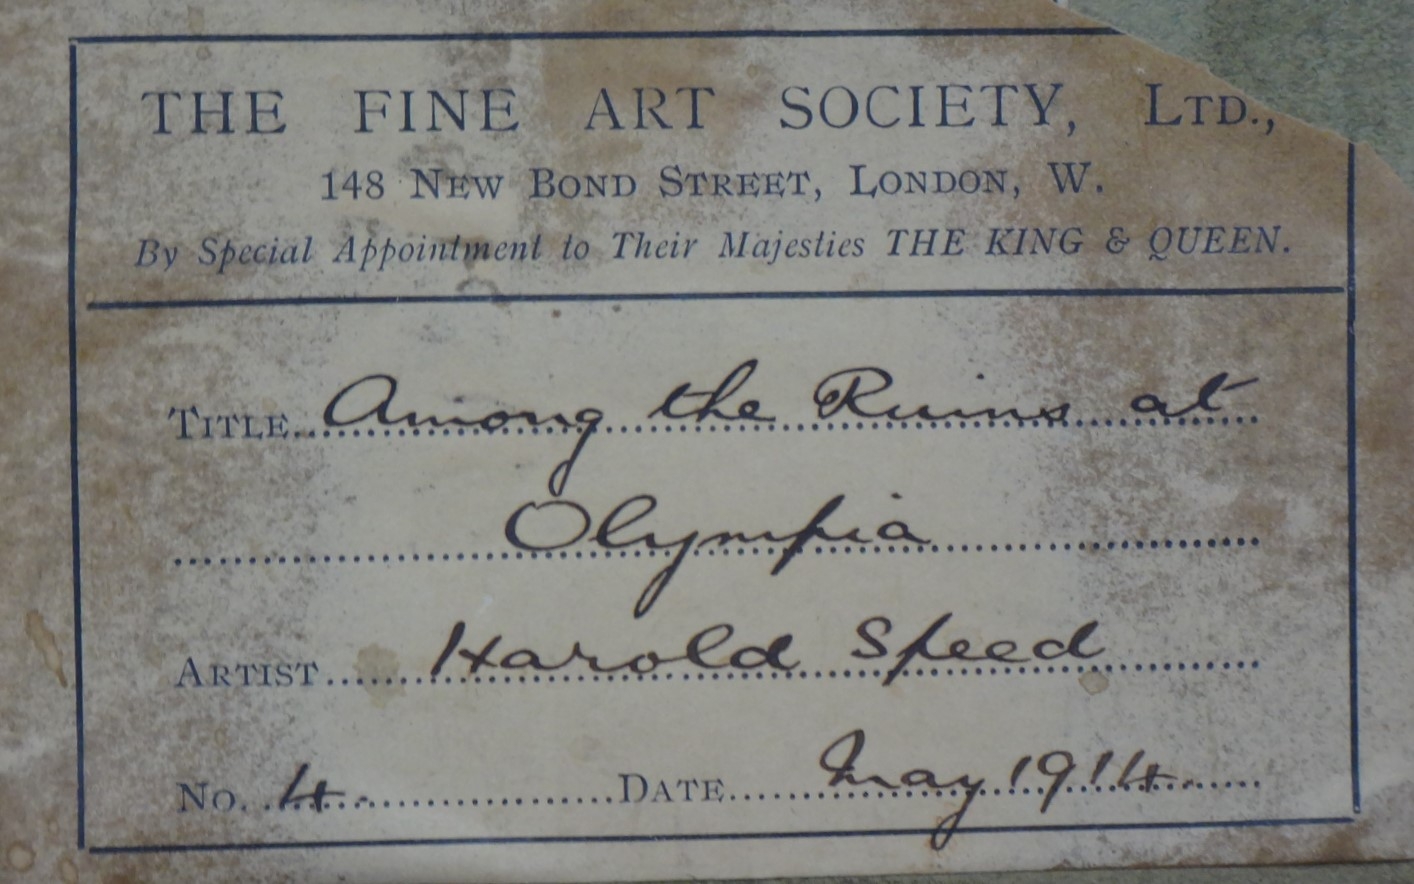 THE FINE ART SOCIETY, LTD.,
148 NEW BOND STREET, LONDON, W.
By Special Appointment to Their Majesties THE KING & QUEEN.
TITLE Among the Ruins at
Olympia
ARTIST Harold Speed
No. 4. DATE May 1914.